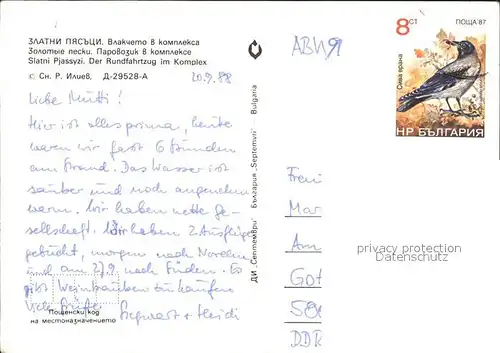 ЗЛАТНИ ПЯСЪЦИ. Влакчето в комплекса
Золотые пески. Паровозик в комплексе
Slatni Pjassyzi. Der Rundfahrtzug im Komplex
© Сн. Р. Илиев, Д-29528-А
20.9.88
Liebe Mutti!
Hier ist alles prima, heute
waren wir fast 6 Stunden
am Strand. Das Wasser ist
sauber und noch angenehm
warm. Wir haben nette Ge-
sellschaft. Wir haben 2 Ausflüge
gebucht, morgen nach Norden
und am 27.9. nach Süden. Es
gibt Weintrauben zu kaufen
Viele Grüße
Siegwart + Heidi
Пощенски код
на местоназначението
ДИ „Септември“ България „Septemvri“ Bulgaria
8 СТ
ПОЩА '87
Сива врана
НР БЪЛГАРИЯ
Mar
Am
Got
DDR
privacy protection
Datenschutz